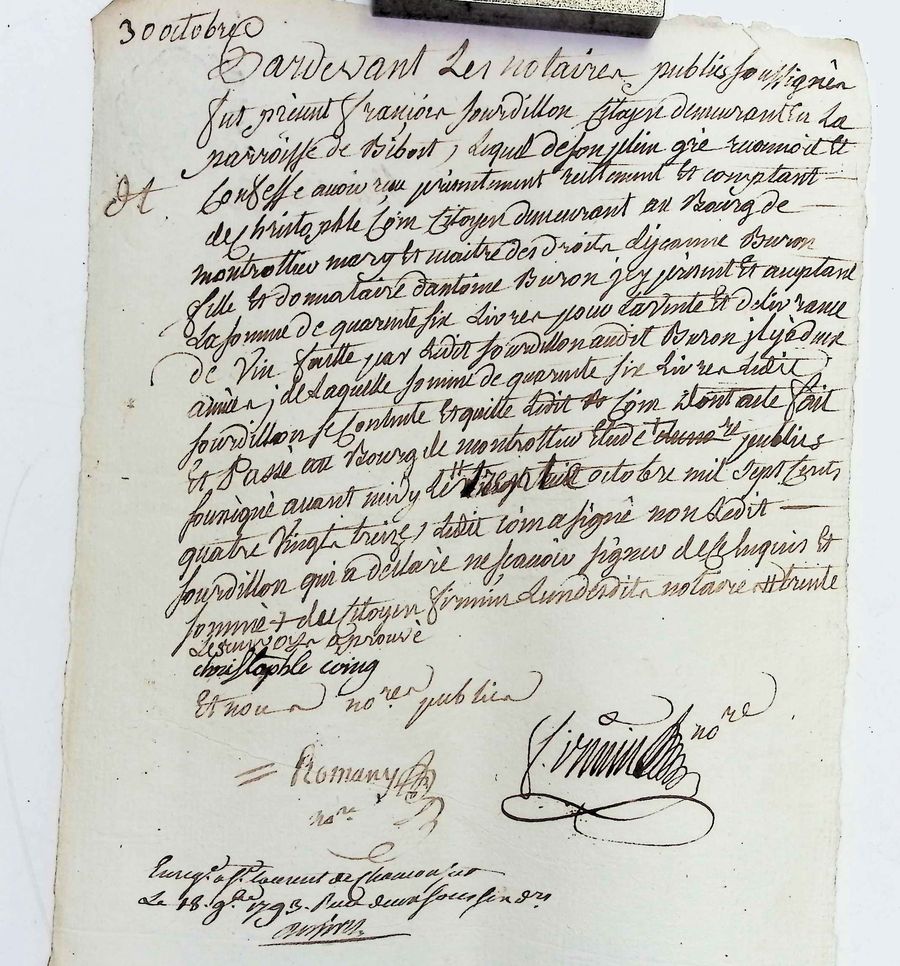 30 octobre
Pardevant Les notaires publics soussignés
fut présent françois sourdillon Citoyen demeurant En La
parroisse de Bibost, Lequel de son plein gré reconnoit Et
qt
Confesse avoir reçu présentement réellement Et comptant
de Christophle Coin Citoyen demeurant au Bourg de
montrottier mary Et maitre des droits de jeanne Buron
fille Et donnataire d'antoine Buron, jcy présent Et acceptant
La somme de quarente six Livres pour La vente Et delivrance
de Vin faitte par Ledit sourdillon audit Buron jl y a deux
années; de Laquelle somme de quarente six Livres Ledit
sourdillon se Contente Et quitte Ledit Coin Dont acte fait
Et Passé au Bourg de montrottier Etude publics
soussigné avant midy Le octobre mil sept Cents
quatre Vingts treize, Ledit coin a signé non Ledit
sourdillon qui a déclaré ne sçavoir signer de ce Enquis Et
sommé + du Citoyen firmin L'un desdits notaires # trente
Les renvoys aprouvé
christophle coing
Et nous no.res publics
f.irmin no.re
= Romany
no.re
Enreg.é a S.t Laurent de Chamousset
Le 18. 9.bre 1793. Reçu sous six drs